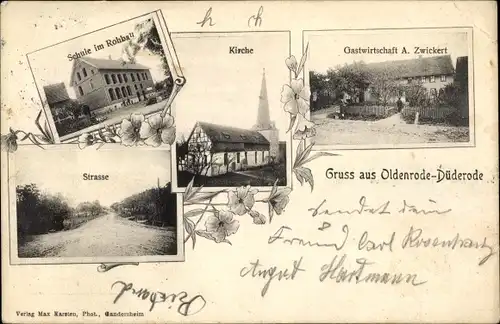 Schule im Rohbau
Kirche
Gastwirtschaft A. Zwickert
Strasse
Gruss aus Oldenrode-Düderode
sendet dein
Freund Carl Rosenbrock
August Hartmann
Richard
Verlag Max Karsten, Phot., Gandersheim